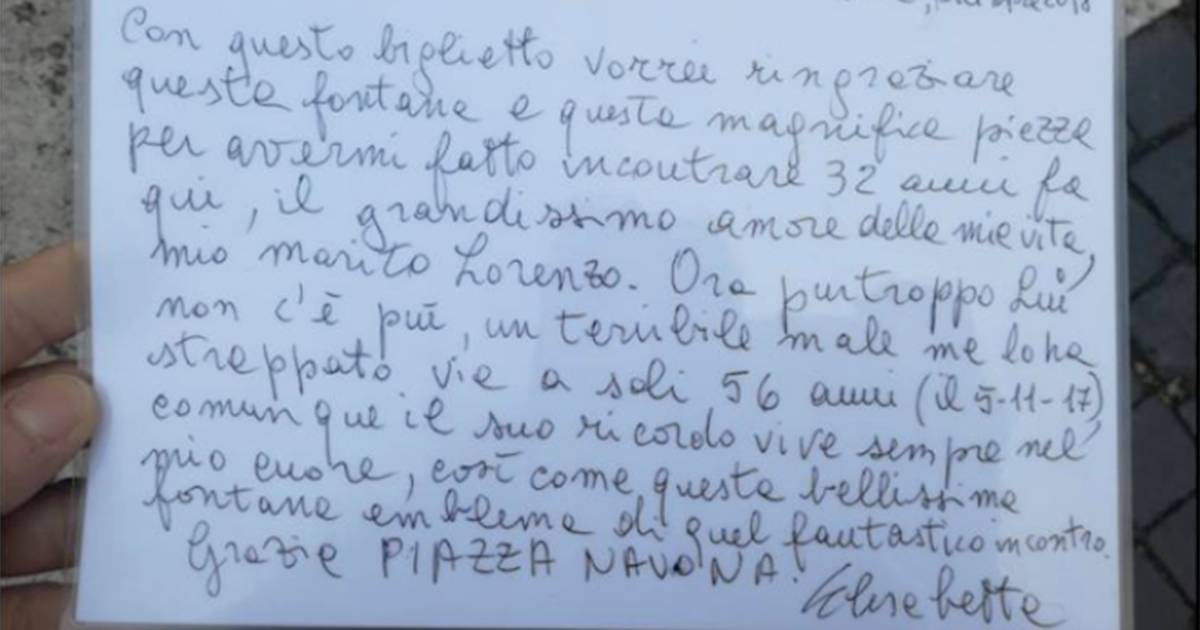 Con questo biglietto vorrei ringraziare
questa fontana e questa magnifica piazza
per avermi fatto incontrare 32 anni fa
qui, il grandissimo amore della mia vita,
mio marito Lorenzo. Ora purtroppo Lui
non c'è più, un terribile male me lo ha
strappato via a soli 56 anni (il 5-11-17)
comunque il suo ricordo vive sempre nel
mio cuore, così come questa bellissima
fontana emblema di quel fantastico incontro.
Grazie PIAZZA NAVONA!
Elisabetta